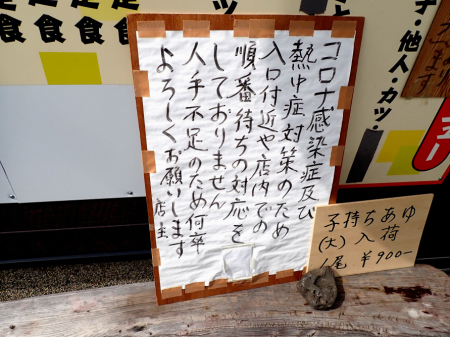 コロナ感染症及び
熱中症対策のため
入口付近や店内での
順番待ちの対応を
しておりません
人手不足のため何卒
よろしくお願いします
店主
子持ちあゆ
(大)入荷
1尾 ¥900-
子・他人・カツ・
定食
定食
定食